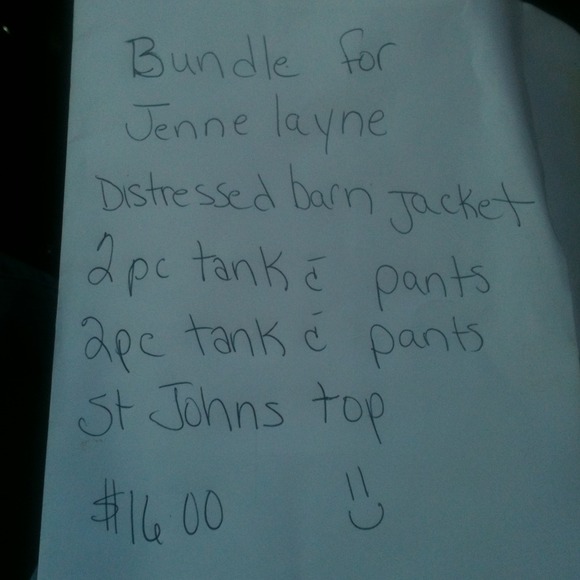 Bundle for
Jenne layne
Distressed barn jacket
2pc tank & pants
2pc tank & pants
St Johns top
$16.00